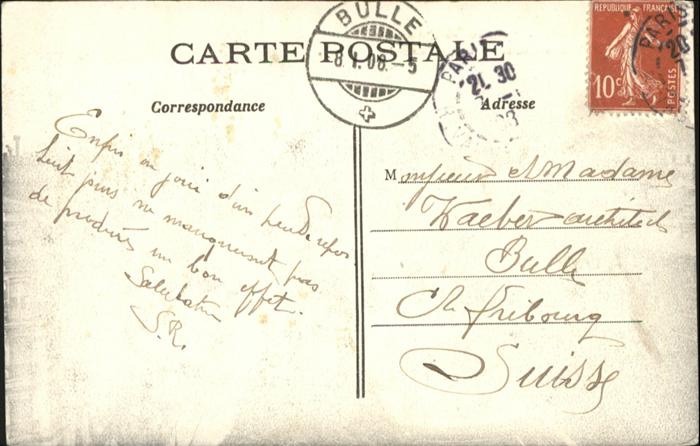 BULLE
8 I. 08. – 5
CARTE POSTALE
PARIS
21 30
REPUBLIQUE FRANÇAISE
10c
POSTES
PARIS
20
Correspondance
Adresse
Enfin on jouit d'un peu de repos
huit jours ne manqueront pas
de produire un bon effet.
Salutation
S.R.
Monsieur et Madame
Waeber architecte
Bulle
Ch. Fribourg
Suisse